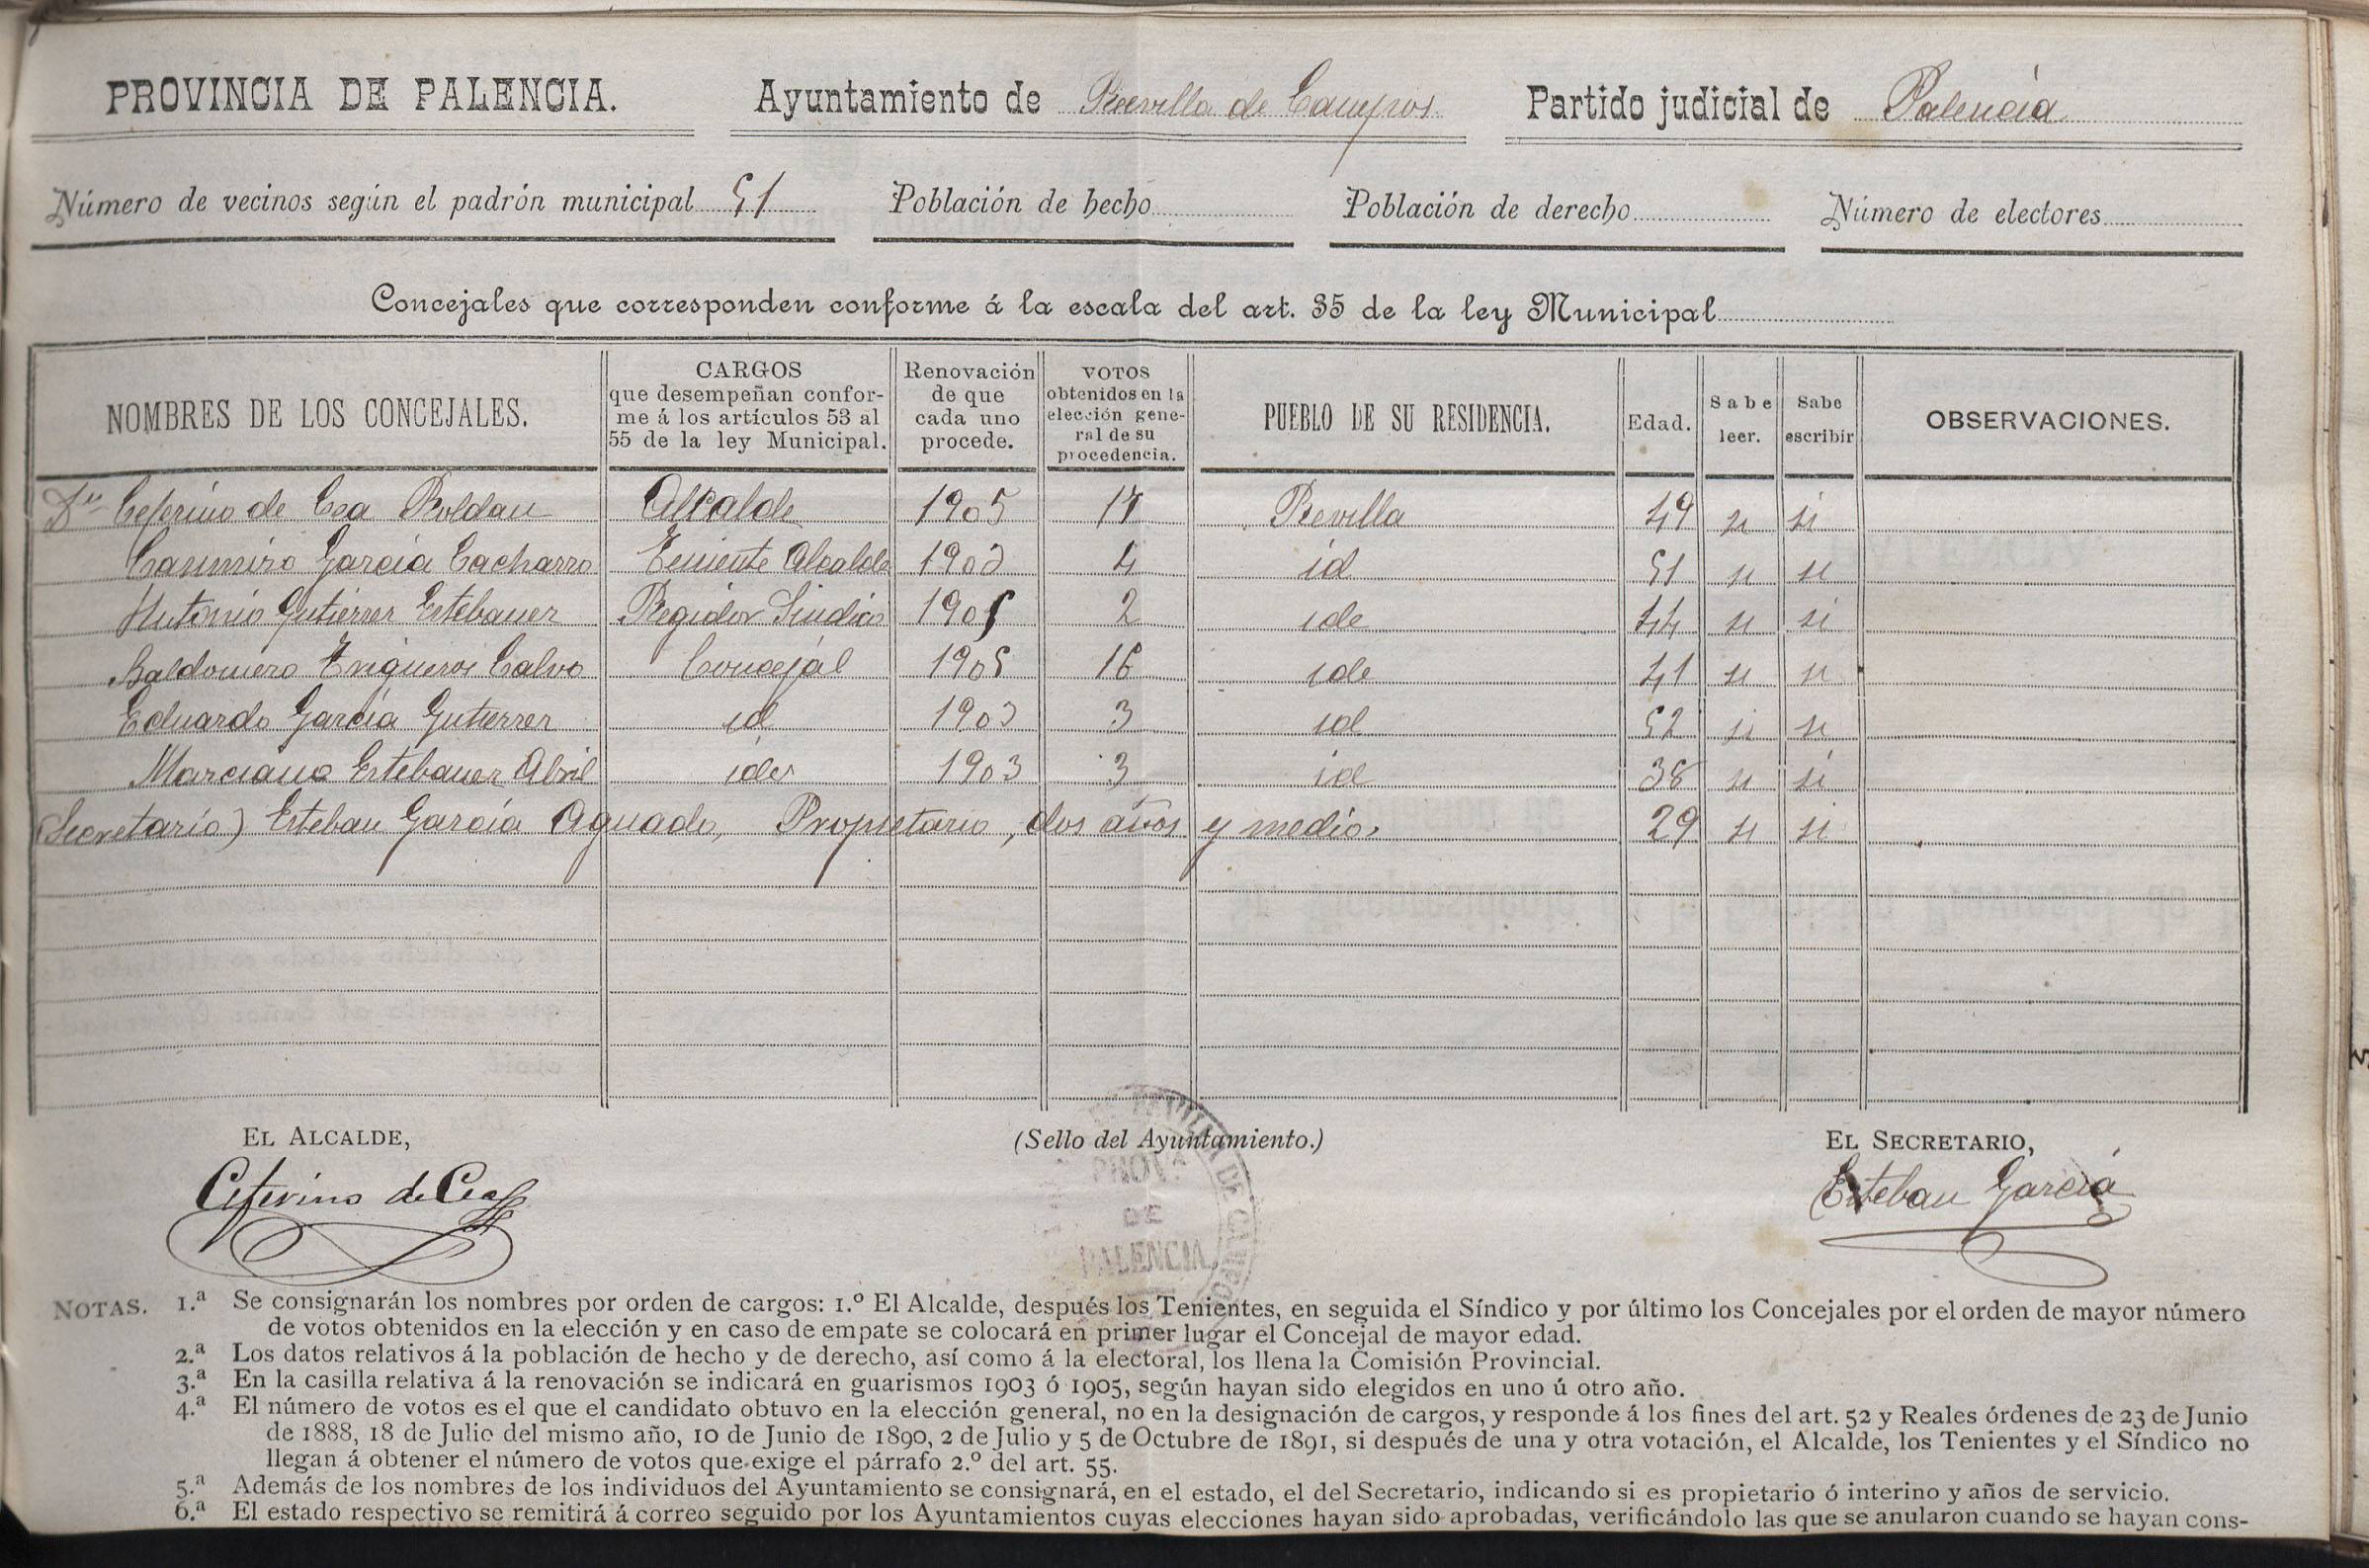 PROVINCIA DE PALENCIA. Ayuntamiento de Revilla de Campos Partido judicial de Palencia
Número de vecinos según el padrón municipal 51 Población de hecho Población de derecho Número de electores
Concejales que corresponden conforme á la escala del art. 35 de la ley Municipal
NOMBRES DE LOS CONCEJALES. CARGOS que desempeñan confor-me á los artículos 53 al 55 de la ley Municipal. Renovación de que cada uno procede. VOTOS obtenidos en la elección gene-ral de su procedencia. PUEBLO DE SU RESIDENCIA. Edad. Sabe leer. Sabe escribir OBSERVACIONES.
Dn Ceferino de Cea Roldan Alcalde 1905 17 Revilla 49 si si
Casimiro García Cacharro Teniente Alcalde 1903 4 id 51 si si
Antonio Gutiérrez Estebanez Regidor Sindico 1905 2 ide 44 si si
Baldomero Trigueros Calvo Concejal 1905 16 ide 41 si si
Eduardo García Gutierrez id 1903 3 id 52 si si
Marciano Estebanez Abril ide 1903 3 id 38 si si
(Secretario) Esteban García Aguado, Propietario, dos años y medio. 29 si si
EL ALCALDE, (Sello del Ayuntamiento.) EL SECRETARIO,
Ceferino de Cea Esteban García
DE
PALENCIA
NOTAS. 1.ª Se consignarán los nombres por orden de cargos: 1.º El Alcalde, después los Tenientes, en seguida el Síndico y por último los Concejales por el orden de mayor número
de votos obtenidos en la elección y en caso de empate se colocará en primer lugar el Concejal de mayor edad.
2.ª Los datos relativos á la población de hecho y de derecho, así como á la electoral, los llena la Comisión Provincial.
3.ª En la casilla relativa á la renovación se indicará en guarismos 1903 ó 1905, según hayan sido elegidos en uno ú otro año.
4.ª El número de votos es el que el candidato obtuvo en la elección general, no en la designación de cargos, y responde á los fines del art. 52 y Reales órdenes de 23 de Junio
de 1888, 18 de Julio del mismo año, 10 de Junio de 1890, 2 de Julio y 5 de Octubre de 1891, si después de una y otra votación, el Alcalde, los Tenientes y el Síndico no
llegan á obtener el número de votos que exige el párrafo 2.º del art. 55.
5.ª Además de los nombres de los individuos del Ayuntamiento se consignará, en el estado, el del Secretario, indicando si es propietario ó interino y años de servicio.
6.ª El estado respectivo se remitirá á correo seguido por los Ayuntamientos cuyas elecciones hayan sido aprobadas, verificándolo las que se anularon cuando se hayan cons-